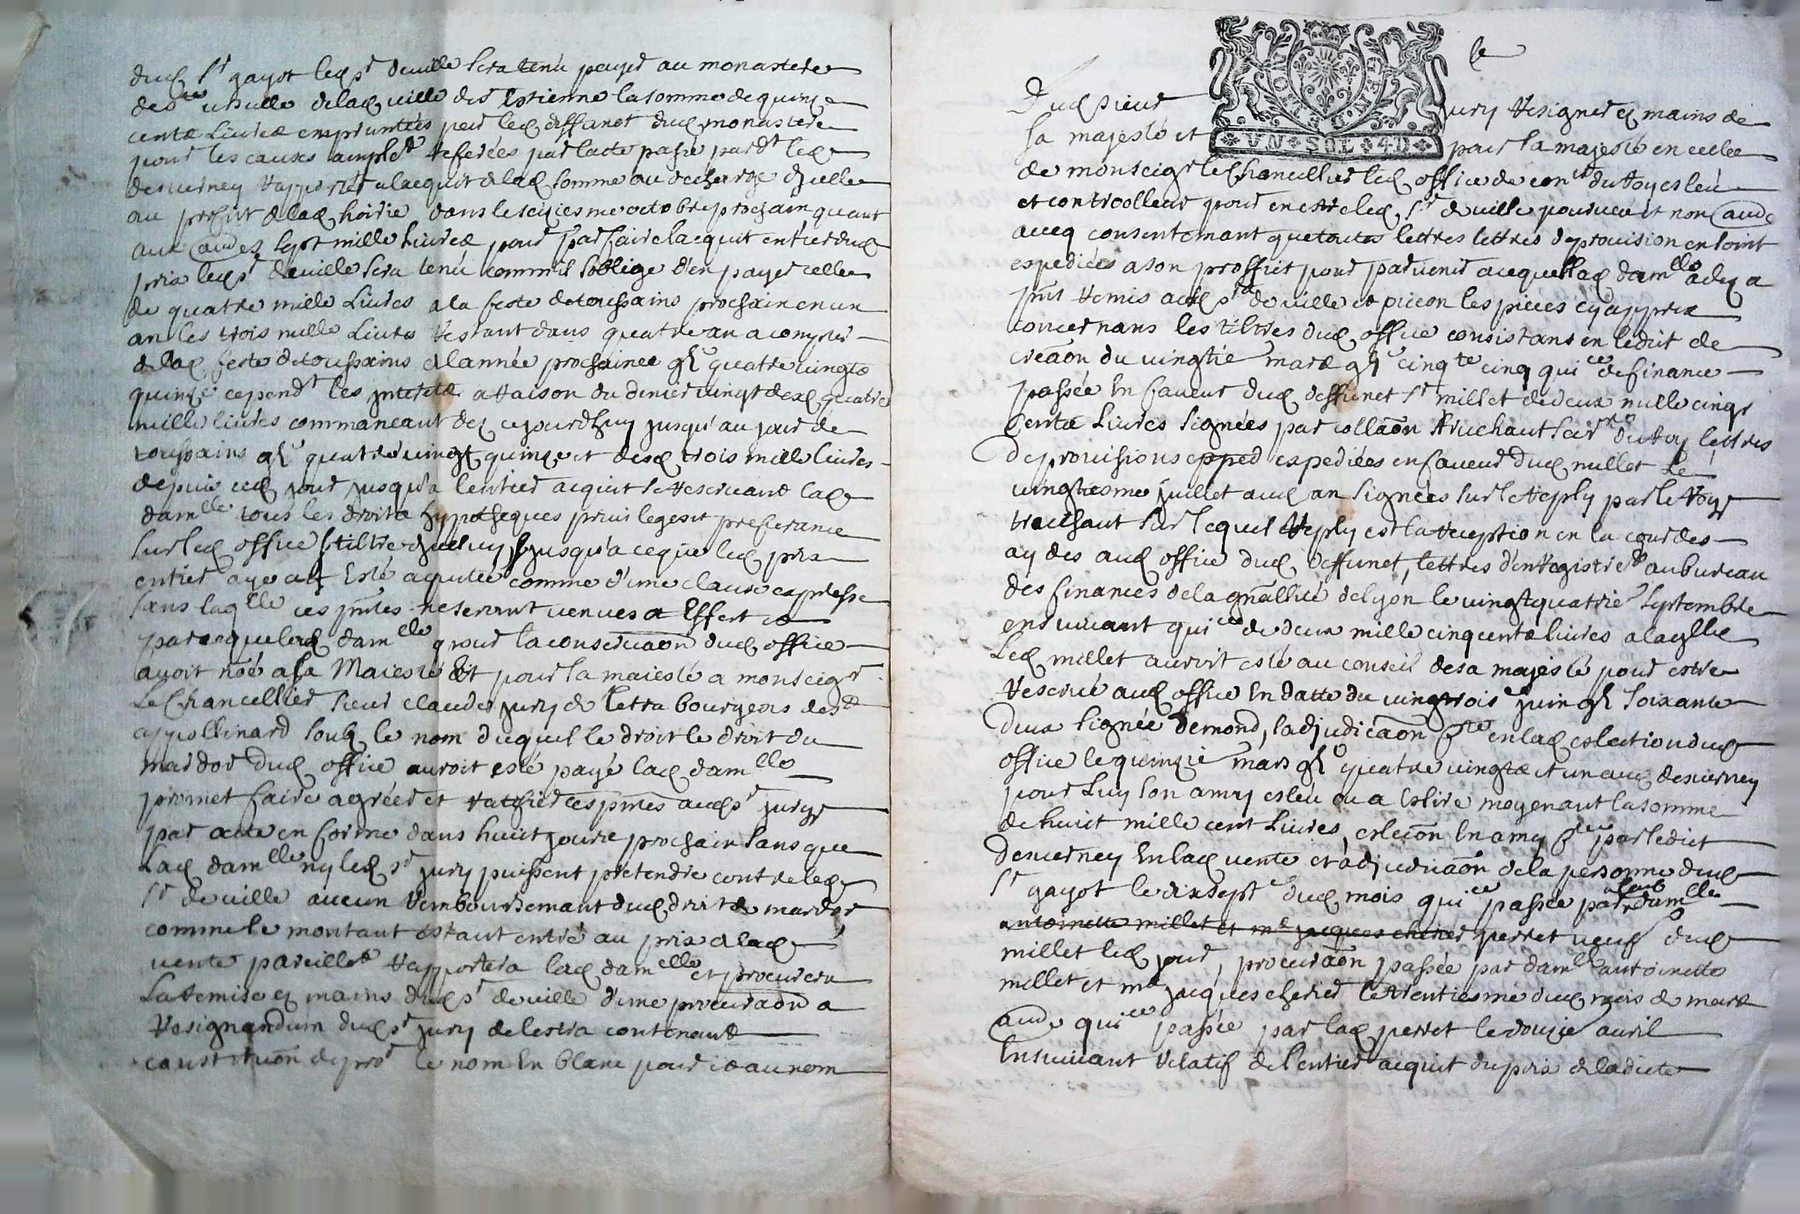 dud Sr gayot led sr deuille sera tenu payer au monastere
des ste ursulle de lad ville de st Estienne la somme de quinze
cents Liures empruntées par led deffunct dud monastere
pour les causes amplemt referées par lacte passé pardt led
desuerney rapporter lacquit de lad somme au decharge dicelle
au proffit de lad hoirie dans le seiziesme octobre prochain quant
aux autres sept mille Liures pour parfaire lacquit entier dud
prix led sr deuille sera tenu comm il soblige d'en payer celle
de quatre mille Liures a la feste de toussains prochain en un
an les trois mille Liures restant dans quatre an a compter
de lad feste de toussains de lannée prochaine gbj quatre vingts
quinze cependt les interets a raison du denier vingt desd quatre
mille liures commancant dez ce jourdhuy jusqu'au jour de
toussains gbj quatre vingt quinze et desd trois mille liures
depuis ced jour jusqu'a lentier acquit se reseruant lad
damlle tous les droits hypotheques priuileges et preferance
sur led office et tiltre dicelluy jusqu'a ce que led prix
entier aye esté aquitté comme d'une clause expresse
sans laqlle ces pntes ne seroint venues a Effect et
parceque lad damlle pour la conseruaon dud office
auoit noé a sa Maiesté Et pour sa maiesté a monseigr
Le Chancellier sieur claude jury de letra bourgeois de st
appollinard soubz le nom duquel le droit le droit du
mardor dud office auroit esté payé lad damlle
promet faire agréer et ratiffier ces pntes aud sr jury
par acte en forme dans huict jours prochain sans que
Lad damlle ny led sr jury puissent pretendre contre led
sr deuille aucun remboursemant dud droit de mardor
comme le montant estant entré au prix de lad
vente pareillemt rapportera lad damlle et procurera
La remise ez mains dud sr deuille d'une procuraon a
resignandum dud sr jury de lestra contenant
constituon de procr le nom En blanc pour et au nom
Dud sieur jury resigner ez mains de
sa majesté et pour sa majesté en celle
de monseigr le Chancellier led office de conser du Roy esleu
et controolleur pour en estre led Sr deuille pourueu et non autre
auec consentemant que toutes lettres lettres de prouision en soint
expediées a son proffit pour paruenir auquel lad damlle a de pnt
remis aud sr deuille et picon les pieces cy appres
concernans les tiltres dud office consistans en ledit de
creaon du vingtie mars gbj cinqte cinq quice de finance
passée En faueur dud deffunct sr millet de deux mille cinq
cents Liures signées par collaon truchaut secrre du Roy, lettres
de prouisions epped expediées en faueur dud millet Le
vingtiesme juillet aud an signées sur le reply par le Roy
truchaut sur lequel reply est la reception en la cour des
aydes aud office dud deffunct, lettres d'enregistremt au bureau
des finances de la gnallité de lyon le vingtquatrie septembre
ensuiuant quice de deux mille cinq cents liures a laqlle
Led millet auroit esté au conseil de sa majesté pour estre
reserué aud office En datte du vingtrois juin gbj soixante
deux signée demond, ladjudicaon en lad eslection dud
office le quinzie mars gbj quatre vingts et un aud desuerney
pour Luy son amy esleu ou a Eslire moyenant la somme
de huict mille cent Liures, eslecon En amy par ledict
desuerney En lad vente et adjudicaon de la personne dud
sr gayot le dixsept dud mois quice passée par lad damlle
antoinette millet et me jacques cherier perret veufue dud
millet led jour, procuraon passée par damlle antoinette
millet et me jacques cherier le trentiesme dud mois de mars
autre quice passée par lad perret le douzie auril
Ensuiuant relatif de l'entier acquit du prix de ladicte
VN SOL 4D
MOYEN GEN DE